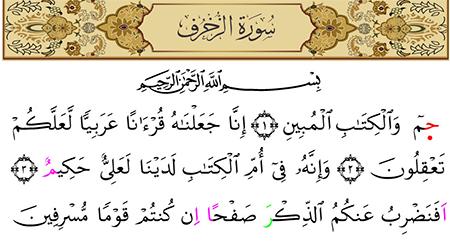 سُورَةُ الزُّخْرُفِ
بِسْمِ اللَّهِ الرَّحْمَٰنِ الرَّحِيمِ
حمٓ وَٱلْكِتَٰبِ ٱلْمُبِينِ ﴿١﴾ إِنَّا جَعَلْنَٰهُ قُرْءَٰنًا عَرَبِيًّا لَّعَلَّكُمْ
تَعْقِلُونَ ﴿٢﴾ وَإِنَّهُۥ فِىٓ أُمِّ ٱلْكِتَٰبِ لَدَيْنَا لَعَلِىٌّ حَكِيمٌ ﴿٣﴾
اَفَنَضْرِبُ عَنكُمُ ٱلذِّكْرَ صَفْحًا اِن كُنتُمْ قَوْمًا مُّسْرِفِينَ